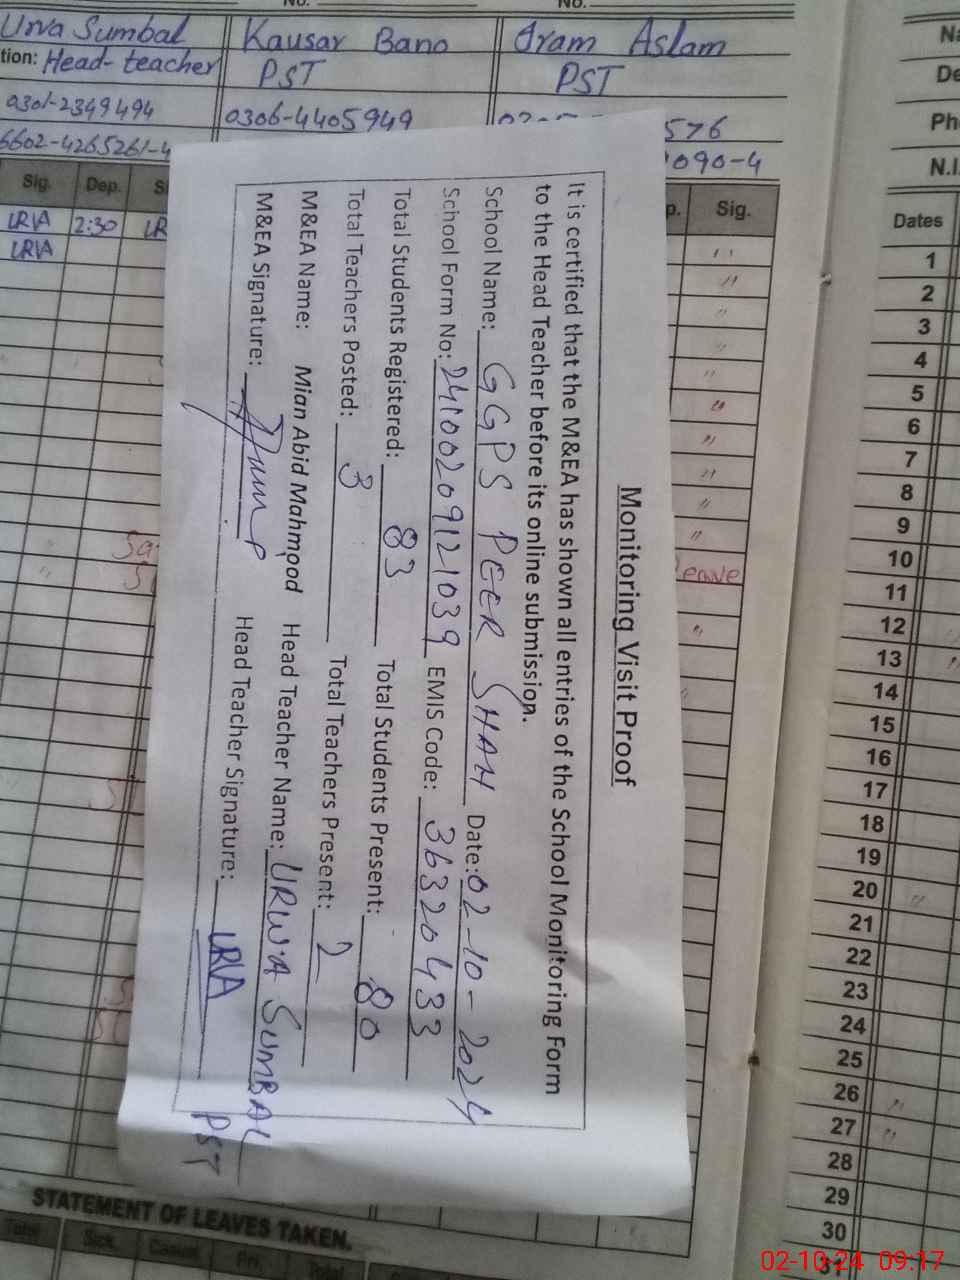 No. No.
Urva Sumbal Kausar Bano Iram Aslam
tion: Head-teacher PST PST
0301-2349494 0306-4405949 576
6602-4265261-4 090-4
Sig. Dep. p. Sig.
URVA 2:30
URVA
eave
Monitoring Visit Proof
It is certified that the M&EA has shown all entries of the School Monitoring Form
to the Head Teacher before its online submission.
School Name: GGPS PEER SHAH Date: 02-10-2024
School Form No: 24100209121039 EMIS Code: 36320433
Total Students Registered: 83 Total Students Present: 80
Total Teachers Posted: 3 Total Teachers Present: 2
M&EA Name: Mian Abid Mahmood Head Teacher Name: URWA SUMBAL
M&EA Signature: Head Teacher Signature: URVA PST
STATEMENT OF LEAVES TAKEN.
Total Sick. Casual Pri. Total
Na
De
Ph
N.I.
Dates
1
2
3
4
5
6
7
8
9
10
11
12
13
14
15
16
17
18
19
20
21
22
23
24
25
26
27
28
29
30
31
02-10-24 09:17